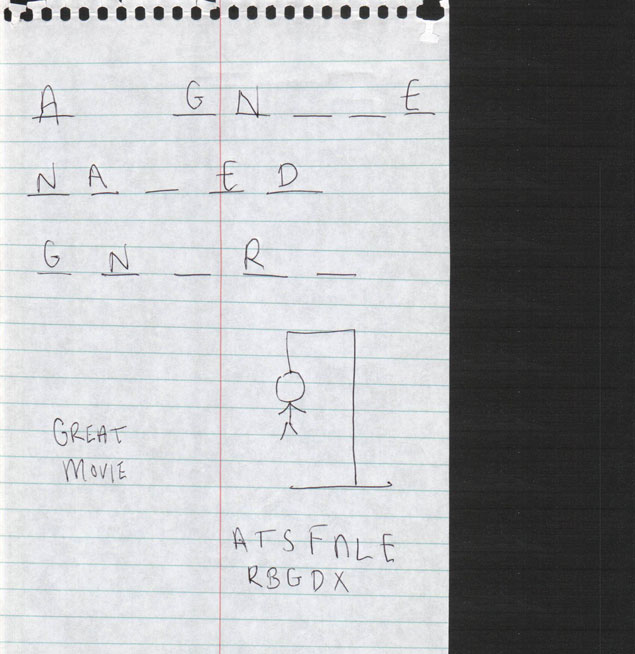 A GN__E
NA_ED
GN_R_
GREAT
MOVIE
ATSFNLE
RBGDX